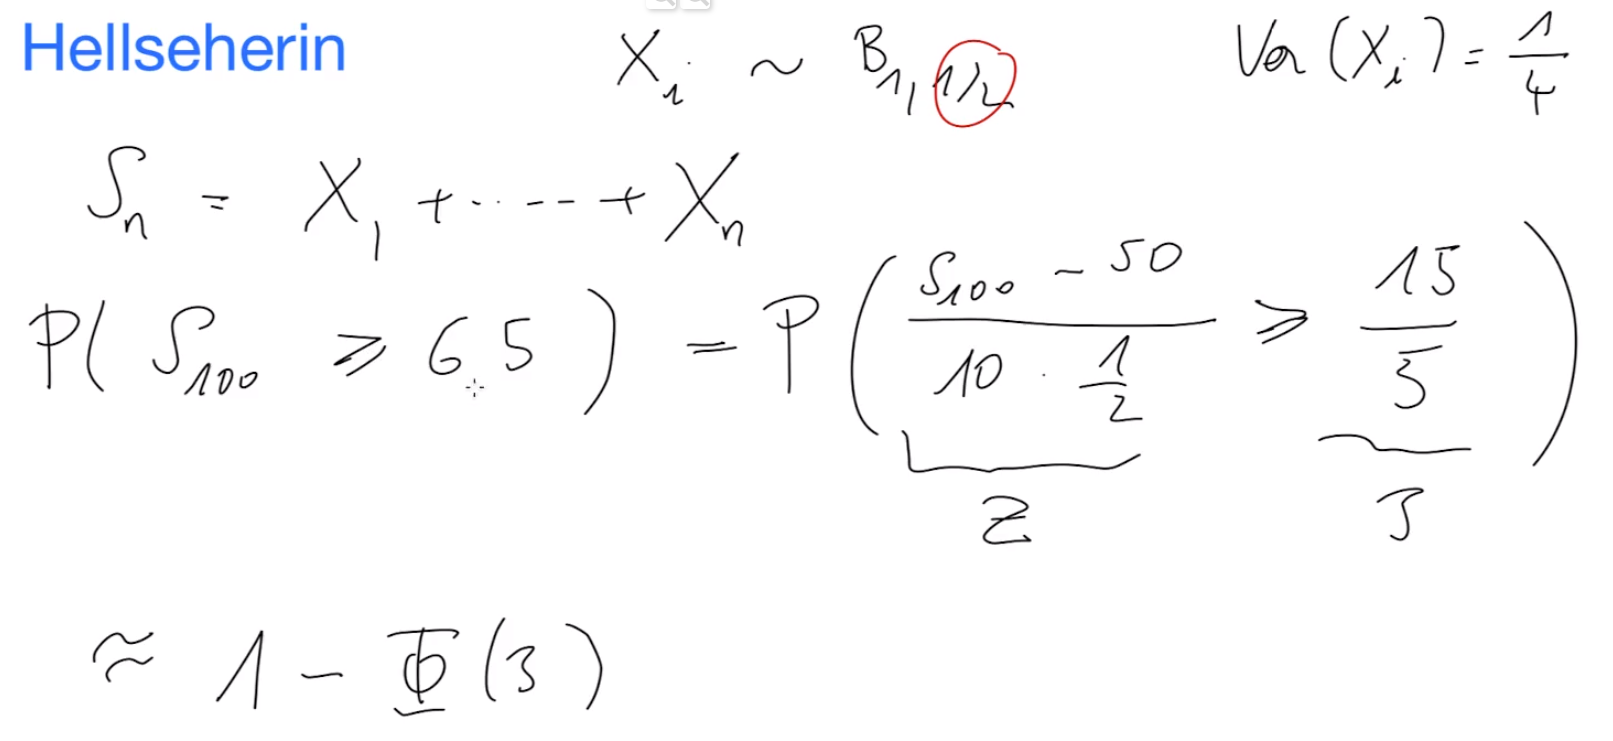 Hellseherin X_i ~ B_{1, 1/2} Var(X_i) = 1/4
S_n = X_1 + ..... + X_n
P( S_100 ≥ 65 ) = P( (S_100 - 50)/(10 · 1/2) ≥ 15/5 )
Z 3
≈ 1 - Φ(3)